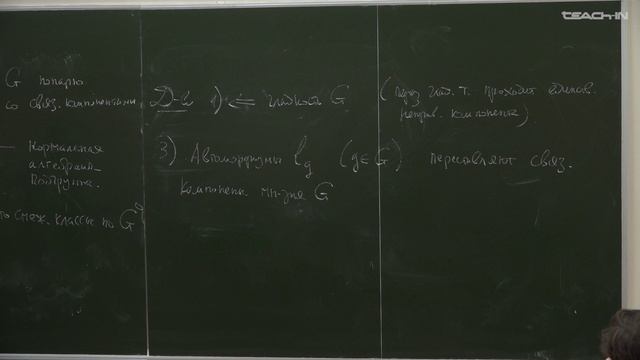 TEACH-IN
G попарно
со связ. компонентами
— Нормальная
алгебраич.
подгруппа.
смеж. классы по G⁰
Д-во 1) ⇐ гладкость G (через глад. т. проходит единств.
неприв. компонента).
3) Автоморфизмы l_g (g∈G) переставляют связ.
компоненты мн-зия G